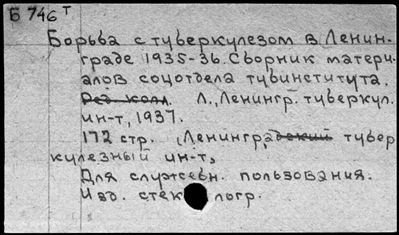 Б 746 т
Борьба с туберкулезом в Ленин-
граде 1935-36. Сборник матери-
алов соцотдела тубинститута.
Ред. колл. Л., Ленингр. туберкул.
ин-т, 1937.
172 стр. (Ленинградский тубер
кулезный ин-т,
Для служебн. пользования.
Изд. стек логр.